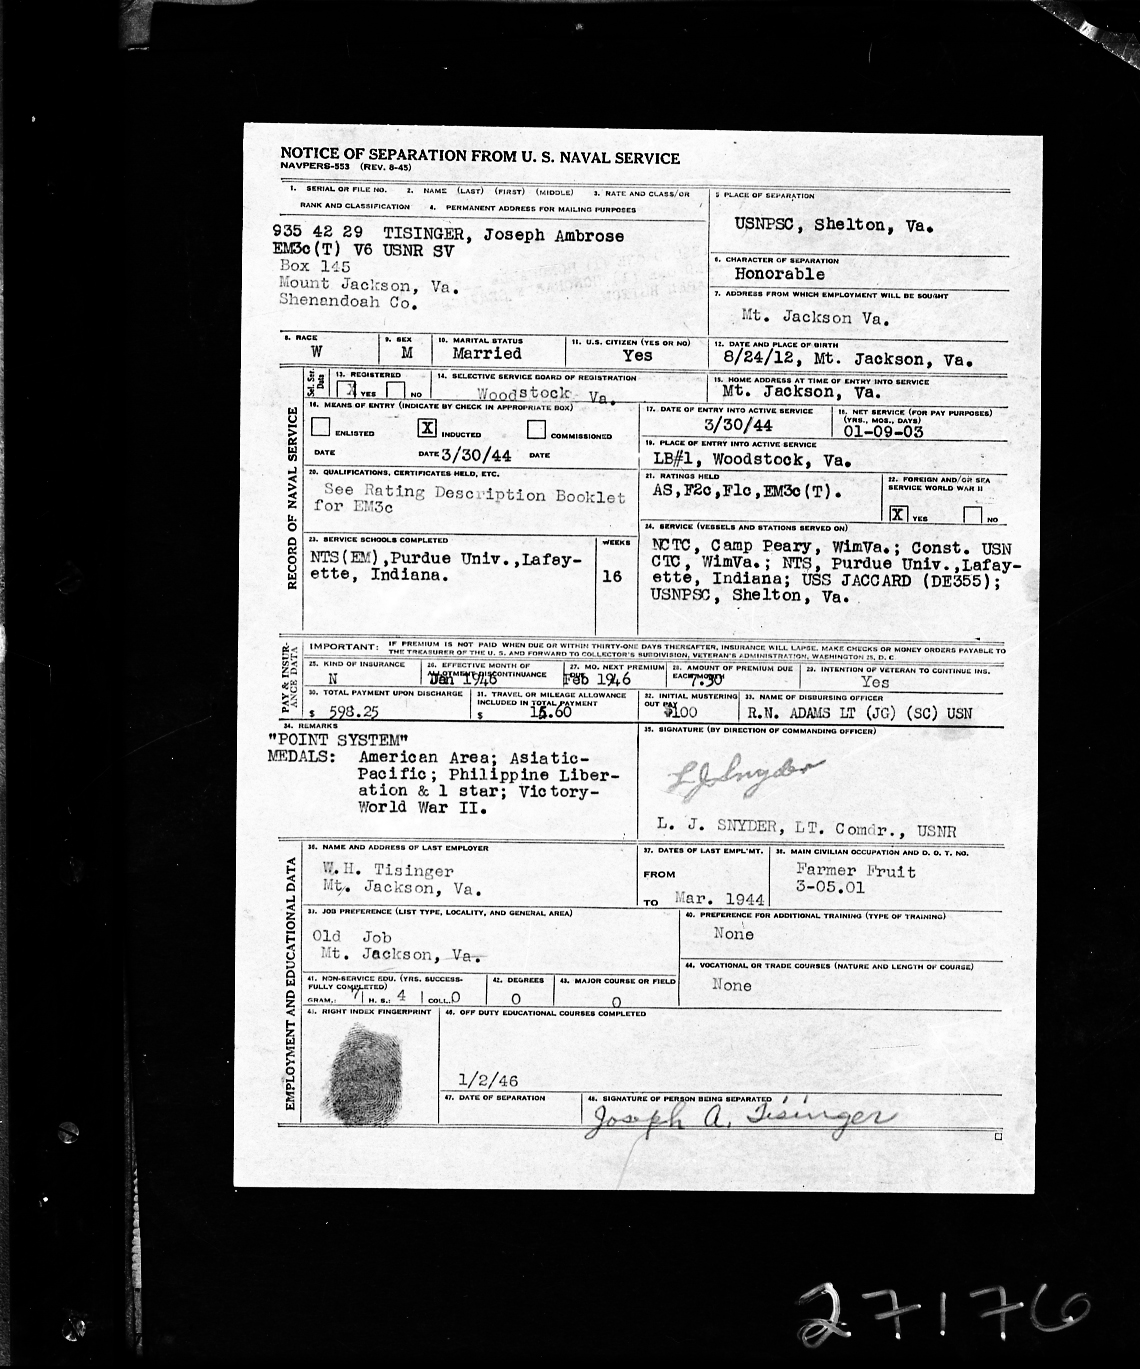 NOTICE OF SEPARATION FROM U. S. NAVAL SERVICE
NAVPERS-553 (REV. 8-45)
1. SERIAL OR FILE NO. 2. NAME (LAST) (FIRST) (MIDDLE) 3. RATE AND CLASS/OR
RANK AND CLASSIFICATION 4. PERMANENT ADDRESS FOR MAILING PURPOSES
935 42 29 TISINGER, Joseph Ambrose
EM3c(T) V6 USNR SV
Box 145
Mount Jackson, Va.
Shenandoah Co.
5 PLACE OF SEPARATION
USNPSC, Shelton, Va.
6. CHARACTER OF SEPARATION
Honorable
7. ADDRESS FROM WHICH EMPLOYMENT WILL BE SOUGHT
Mt. Jackson Va.
8. RACE
W
9. SEX
M
10. MARITAL STATUS
Married
11. U.S. CITIZEN (YES OR NO)
Yes
12. DATE AND PLACE OF BIRTH
8/24/12, Mt. Jackson, Va.
RECORD OF NAVAL SERVICE
Sel. Ser. Data
13. REGISTERED
X YES NO
14. SELECTIVE SERVICE BOARD OF REGISTRATION
Woodstock Va.
15. HOME ADDRESS AT TIME OF ENTRY INTO SERVICE
Mt. Jackson, Va.
16. MEANS OF ENTRY (INDICATE BY CHECK IN APPROPRIATE BOX)
ENLISTED X INDUCTED COMMISSIONED
DATE DATE 3/30/44 DATE
17. DATE OF ENTRY INTO ACTIVE SERVICE
3/30/44
18. NET SERVICE (FOR PAY PURPOSES)
(YRS., MOS., DAYS)
01-09-03
19. PLACE OF ENTRY INTO ACTIVE SERVICE
LB#1, Woodstock, Va.
20. QUALIFICATIONS, CERTIFICATES HELD, ETC.
See Rating Description Booklet
for EM3c
21. RATINGS HELD
AS,F2c,F1c,EM3c(T).
22. FOREIGN AND/OR SEA
SERVICE WORLD WAR II
X YES NO
23. SERVICE SCHOOLS COMPLETED
NTS(EM),Purdue Univ.,Lafay-
ette, Indiana.
WEEKS
16
24. SERVICE (VESSELS AND STATIONS SERVED ON)
NCTC, Camp Peary, WimVa.; Const. USN
CTC, WimVa.; NTS, Purdue Univ.,Lafay-
ette, Indiana; USS JACCARD (DE355);
USNPSC, Shelton, Va.
PAY & INSUR-
ANCE DATA
IMPORTANT: IF PREMIUM IS NOT PAID WHEN DUE OR WITHIN THIRTY-ONE DAYS THEREAFTER, INSURANCE WILL LAPSE. MAKE CHECKS OR MONEY ORDERS PAYABLE TO
THE TREASURER OF THE U. S. AND FORWARD TO COLLECTOR'S SUBDIVISION, VETERAN'S ADMINISTRATION, WASHINGTON 25, D. C
25. KIND OF INSURANCE
N
26. EFFECTIVE MONTH OF
ALLOTMENT DISCONTINUANCE
Jan 1946
27. MO. NEXT PREMIUM
DUE
Feb 1946
28. AMOUNT OF PREMIUM DUE
EACH MONTH
7.30
29. INTENTION OF VETERAN TO CONTINUE INS.
Yes
30. TOTAL PAYMENT UPON DISCHARGE
$ 598.25
31. TRAVEL OR MILEAGE ALLOWANCE
INCLUDED IN TOTAL PAYMENT
$ 15.60
32. INITIAL MUSTERING
OUT PAY
$100
33. NAME OF DISBURSING OFFICER
R.N. ADAMS LT (JG) (SC) USN
34. REMARKS
"POINT SYSTEM"
MEDALS: American Area; Asiatic-
Pacific; Philippine Liber-
ation & 1 star; Victory-
World War II.
35. SIGNATURE (BY DIRECTION OF COMMANDING OFFICER)
L J Snyder
L. J. SNYDER, LT. Comdr., USNR
EMPLOYMENT AND EDUCATIONAL DATA
36. NAME AND ADDRESS OF LAST EMPLOYER
W.H. Tisinger
Mt. Jackson, Va.
37. DATES OF LAST EMPL'MT.
FROM
TO Mar. 1944
38. MAIN CIVILIAN OCCUPATION AND D. O. T. NO.
Farmer Fruit
3-05.01
39. JOB PREFERENCE (LIST TYPE, LOCALITY, AND GENERAL AREA)
Old Job
Mt. Jackson, Va.
40. PREFERENCE FOR ADDITIONAL TRAINING (TYPE OF TRAINING)
None
41. NON-SERVICE EDU. (YRS. SUCCESS-
FULLY COMPLETED)
GRAM.: 7 H. S.: 4 COLL.: 0
42. DEGREES
0
43. MAJOR COURSE OR FIELD
0
44. VOCATIONAL OR TRADE COURSES (NATURE AND LENGTH OF COURSE)
None
45. RIGHT INDEX FINGERPRINT
46. OFF DUTY EDUCATIONAL COURSES COMPLETED
1/2/46
47. DATE OF SEPARATION
48. SIGNATURE OF PERSON BEING SEPARATED
Joseph A. Tisinger
27176